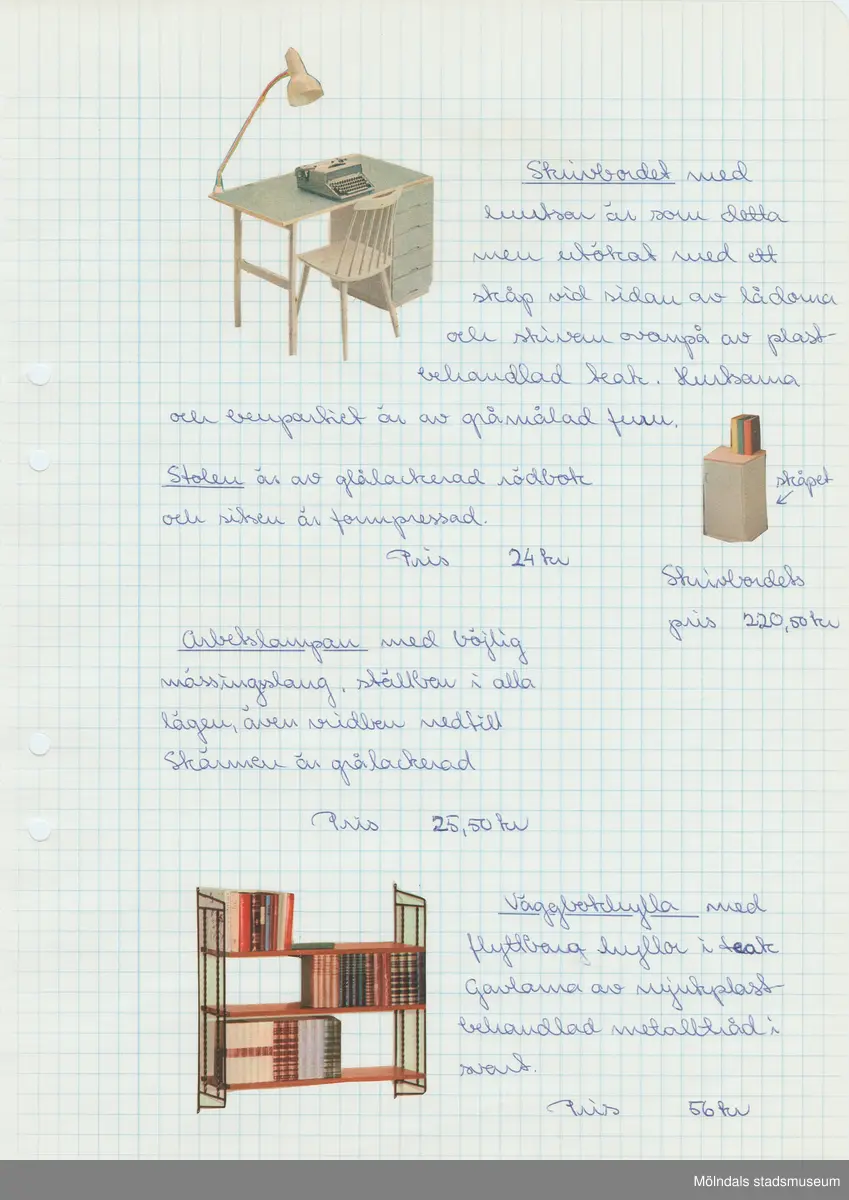 Skrivbordet med
hurtsar är som detta
men utökat med ett
skåp vid sidan av lådorna
och skivan ovanpå av plast-
behandlad teak. Hurtsarna
och benpartiet är av gråmålad furu.
skåpet
Stolen är av glålackerad rödbok
och sitsen är formpressad.
Pris 24 kr
Skrivbordets
pris 220,50 kr
Arbetslampan med böjlig
mässingslang, ställbar i alla
lägen, även vridbar nedtill
Skärmen är grålackerad
Pris 25,50 kr
Väggbokhylla med
flyttbara hyllor i teak
Gavlarna av mjukplast-
behandlad metalltråd i
svart.
Pris 56 kr
Mölndals stadsmuseum